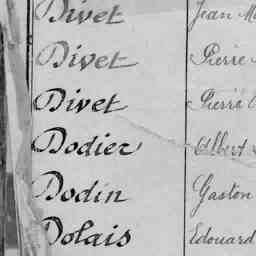 Divet Jean
Divet Pierre
Divet Pierre
Dodier Albert
Dodin Gaston
Dolais Edouard